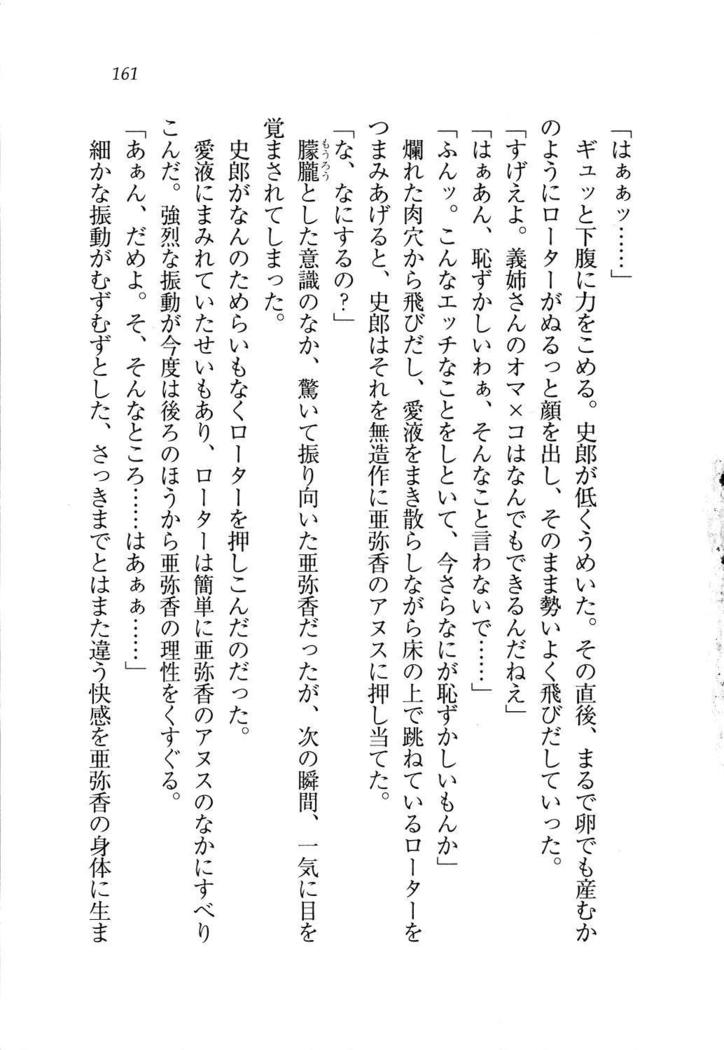 161
「はぁぁッ……」
　ギュッと下腹に力をこめる。史郎が低くうめいた。その直後、まるで卵でも産むか
のようにローターがぬるっと顔を出し、そのまま勢いよく飛びだしていった。
「すげえよ。義姉さんのオマ×コはなんでもできるんだねえ」
「はぁあん、恥ずかしいわぁ、そんなこと言わないで……」
「ふんッ。こんなエッチなことをしといて、今さらなにが恥ずかしいもんか」
　爛れた肉穴から飛びだし、愛液をまき散らしながら床の上で跳ねているローターを
つまみあげると、史郎はそれを無造作に亜弥香のアヌスに押し当てた。
「な、なにするの？」
　朦朧もうろうとした意識のなか、驚いて振り向いた亜弥香だったが、次の瞬間、一気に目を
覚まされてしまった。
　史郎がなんのためらいもなくローターを押しこんだのだった。
　愛液にまみれていたせいもあり、ローターは簡単に亜弥香のアヌスのなかにすべり
こんだ。強烈な振動が今度は後ろのほうから亜弥香の理性をくすぐる。
「あぁん、だめよ。そ、そんなところ……はあぁぁ……」
　細かな振動がむずむずとした、さっきまでとはまた違う快感を亜弥香の身体に生ま